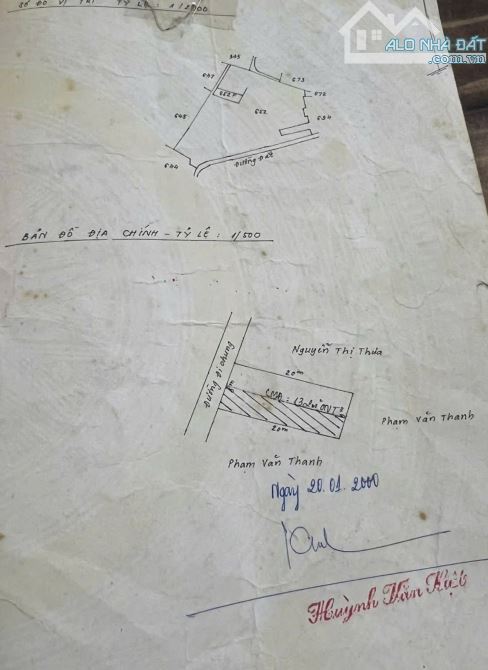 SƠ ĐỒ VỊ TRÍ TỶ LỆ : 1/2000
ALO NHÀ ĐẤT
.com.vn
645
647
673
672
662
694
645
644
Đường Đất
BẢN ĐỒ ĐỊA CHÍNH - TỶ LỆ : 1/500
Nguyễn Thị Thưa
Đường Đi chung
20m
20m
Phạm Văn Thanh
Phạm Văn Thanh
Ngày 20.01.2000
Huỳnh Văn